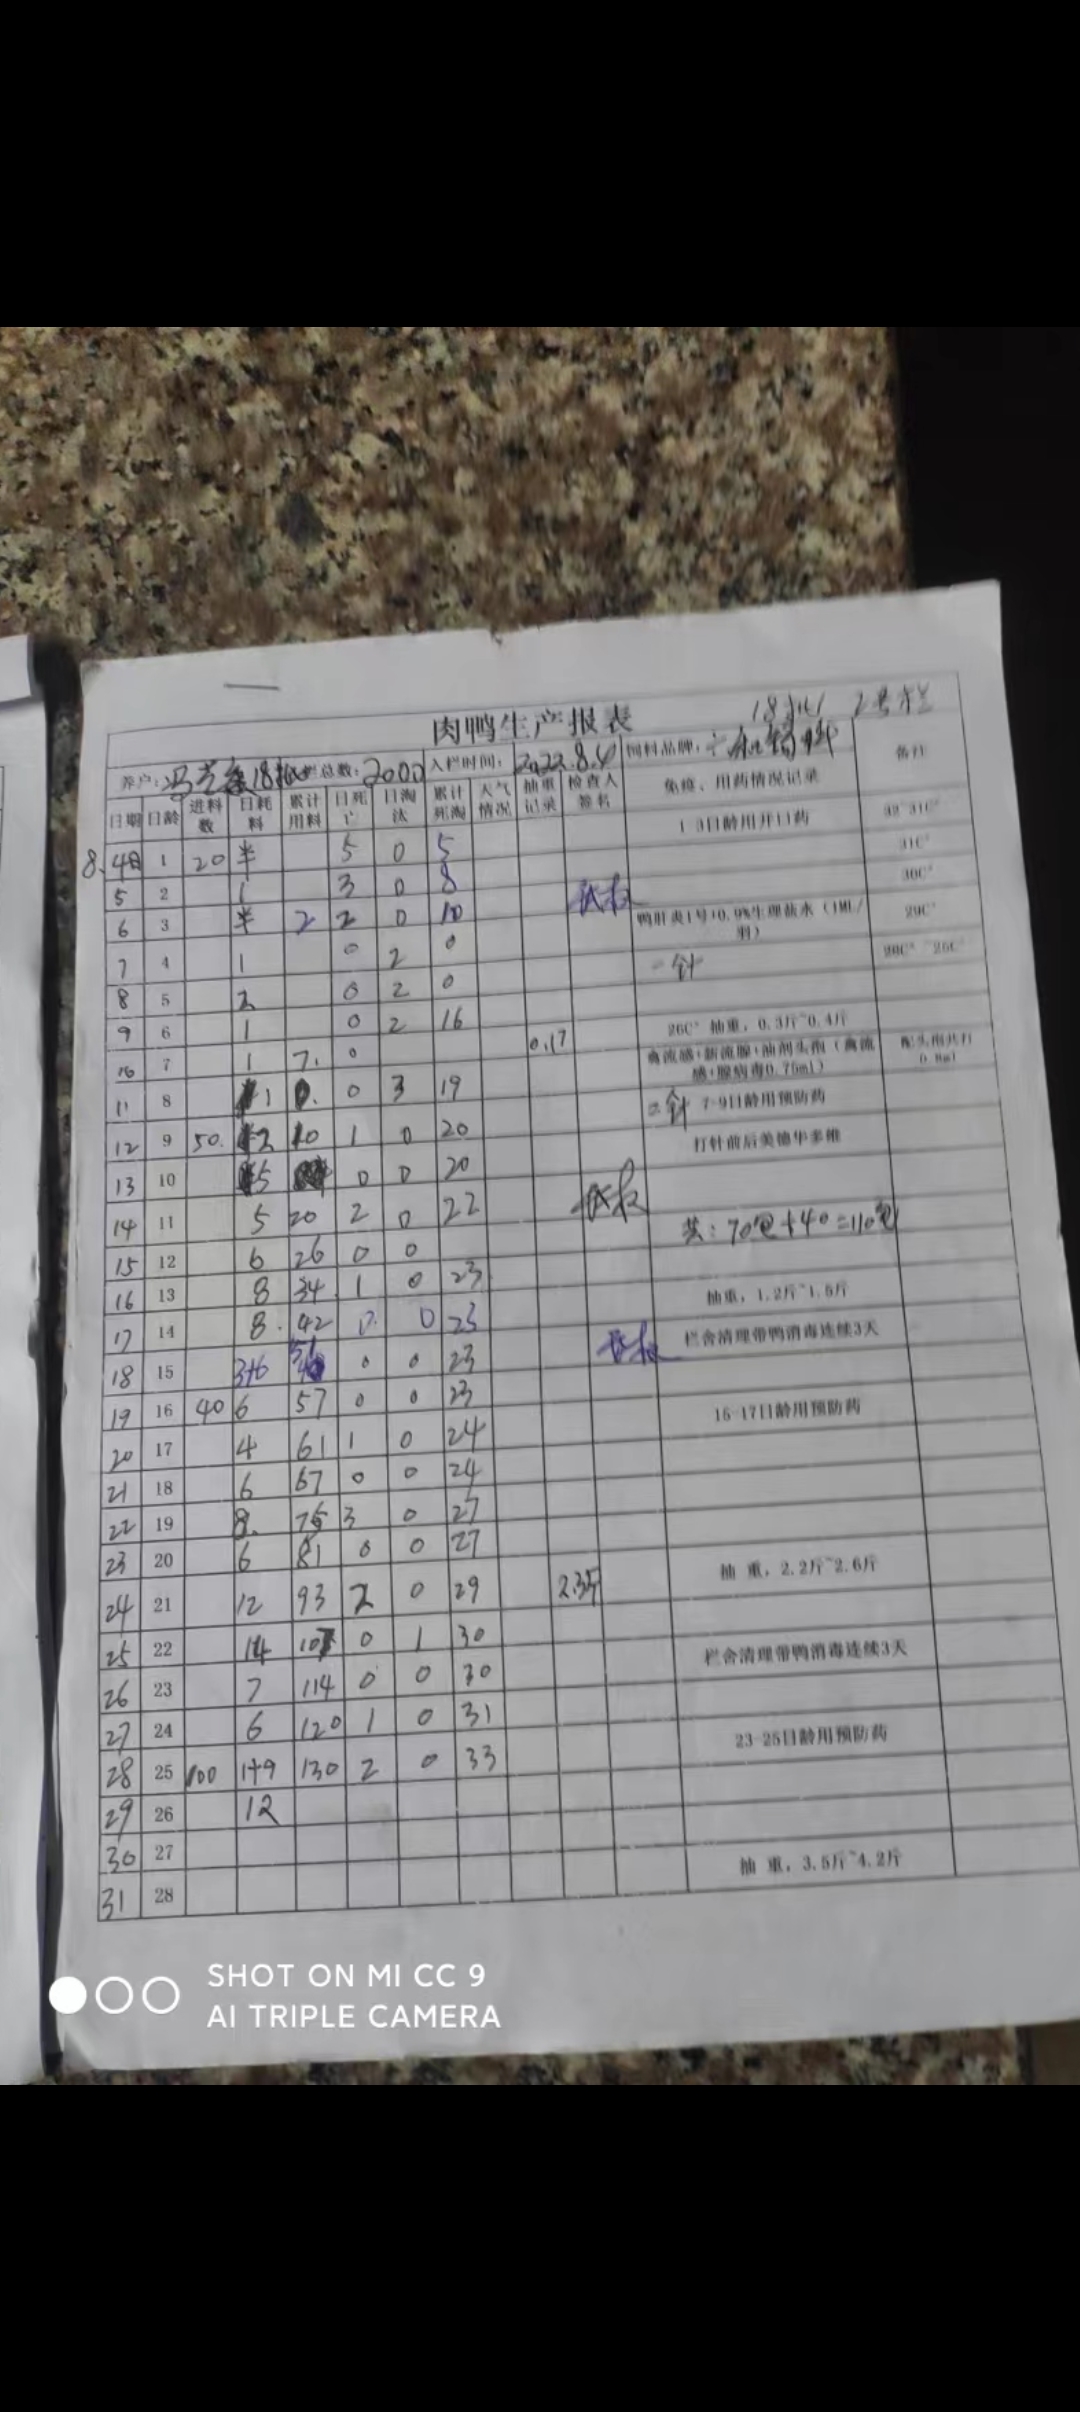 肉鸭生产报表 18批 2号栏
养户: 18批 栏总数: 2000 入栏时间: 2022.8.4 饲料品牌:
日期 日龄 进料数 日耗料 累计用料 日死亡 日淘汰 累计死淘 天气情况 抽重记录 检查人签名 免疫、用药情况记录 备注
8.4日 1 20 半 5 0 5 1-3日龄用开口药
5 2 1 3 0 8 31C°
6 3 半 2 2 0 10 30C°
7 4 1 0 2 0 鸭肝炎1号+0.9%生理盐水(1ML/羽) 29C°
8 5 2 0 2 0 一针
9 6 1 0 2 16
10 7 1 7. 0 0.17 26C° 抽重, 0.3斤~0.4斤
11 8 1 0 3 19 禽流感+新流腺+油剂头孢(禽流感+腺病毒0.75ml)
12 9 50. 2 10 1 0 20 二针 7-9日龄用预防药
13 10 5 0 0 20 打针前后美德华多维
14 11 5 20 2 0 22
15 12 6 26 0 0 共: 70包+40=110包
16 13 8 34 1 0 23
17 14 8. 42 0. 0 23 抽重, 1.2斤~1.5斤
18 15 3+6 51 0 0 23 栏舍清理带鸭消毒连续3天
19 16 40 6 57 0 0 23
20 17 4 61 1 0 24 15-17日龄用预防药
21 18 6 67 0 0 24
22 19 8. 75 3 0 27
23 20 6 81 0 0 27
24 21 12 93 2 0 29 2.3斤 抽 重, 2.2斤~2.6斤
25 22 14 107 0 1 30
26 23 7 114 0 0 30 栏舍清理带鸭消毒连续3天
27 24 6 120 1 0 31
28 25 100 1+9 130 2 0 33 23-25日龄用预防药
29 26 12
30 27
31 28 抽 重, 3.5斤~4.2斤
SHOT ON MI CC 9
AI TRIPLE CAMERA